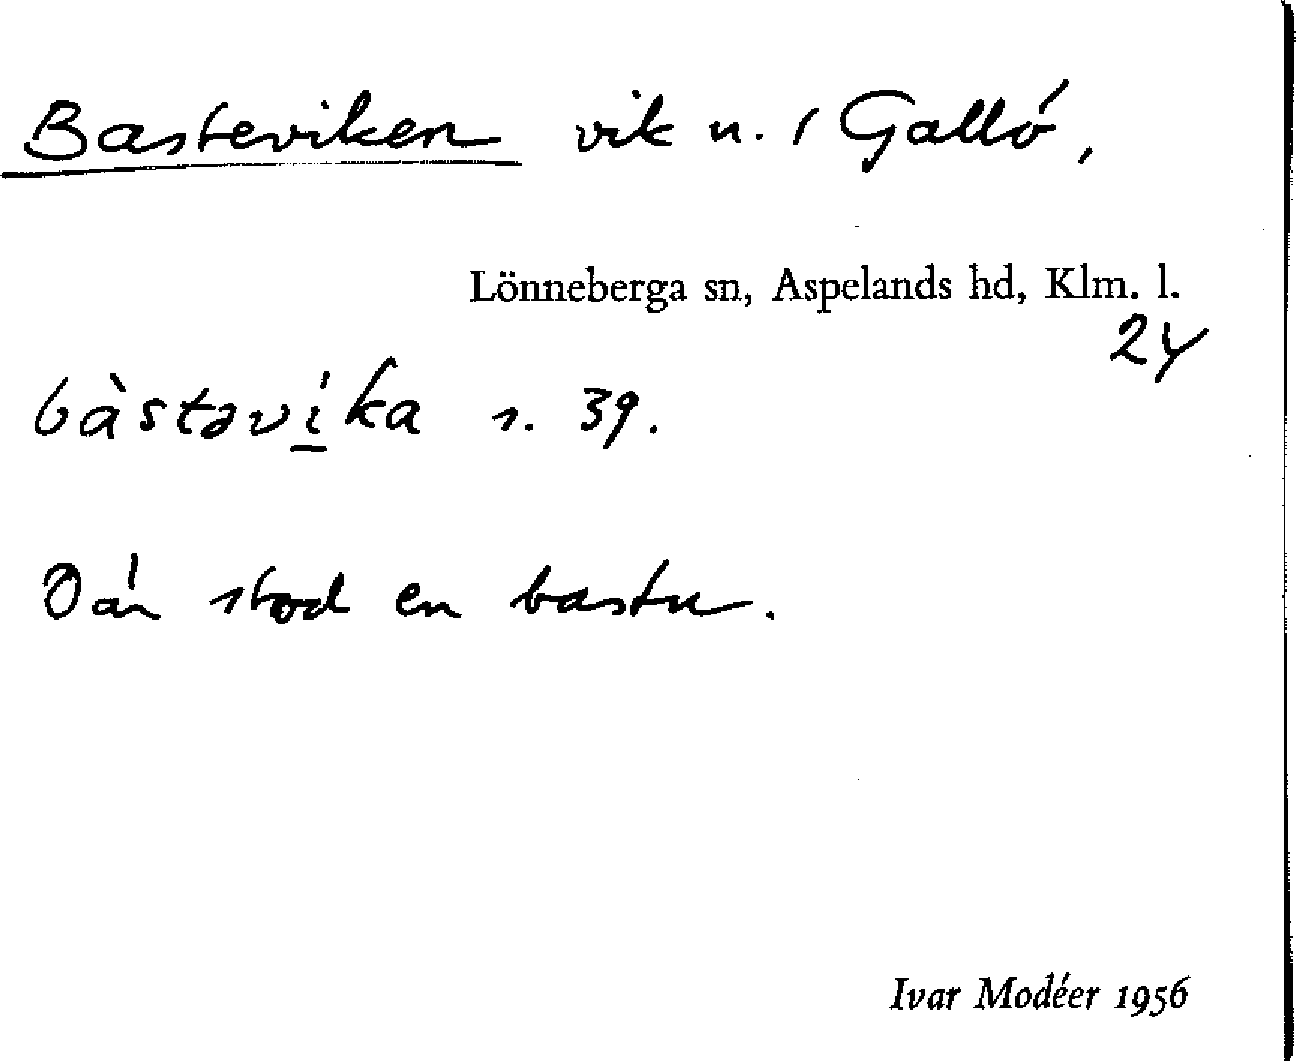 Basteviken vik n. i Gallö,
Lönneberga sn, Aspelands hd, Klm. l.
24
bàstəvi̱ka s. 39.
Där stod en bastu.
Ivar Modéer 1956